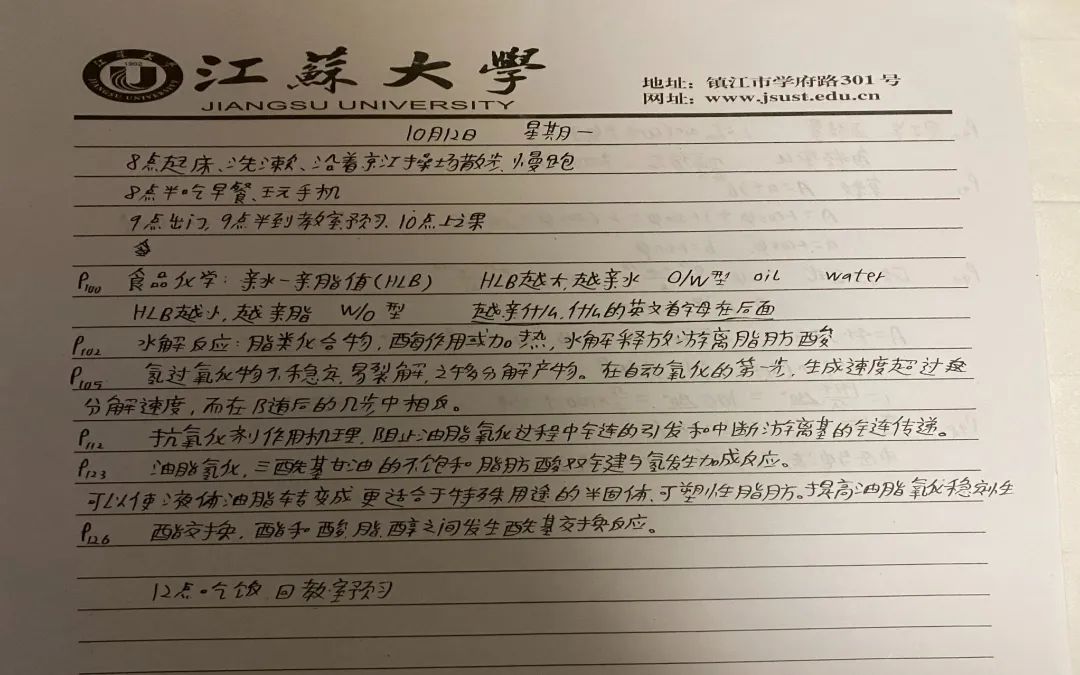 江苏大学
JIANGSU UNIVERSITY
地址：镇江市学府路301号
网址：www.jsust.edu.cn
10月12日 星期一
8点起床、洗漱、沿着京江操场散步、慢跑
8点半吃早餐、玩手机
9点出门，9点半到教室预习，10点上课
P100 食品化学：亲水-亲脂值（HLB） HLB越大，越亲水 O/W型 oil water
HLB越小，越亲脂 W/O型 越亲什么，什么的英文首字母在后面
P102 水解反应：脂类化合物，酶作用或加热，水解释放游离脂肪酸
P105 氢过氧化物不稳定，易裂解，之多分解产物。在自动氧化的第一步，生成速度超过
分解速度，而在随后的几步中相反。
P112 抗氧化剂作用机理，阻止油脂氧化过程中链的引发和中断游离基的链传递。
P123 油脂氢化，三酰基甘油的不饱和脂肪酸双键与氢发生加成反应。
可以使液体油脂转变成更适合于特殊用途的半固体、可塑性脂肪。提高油脂氧化稳定性
P126 酯交换，酯和酸、脂、醇之间发生酰基交换反应。
12点吃饭 回教室预习